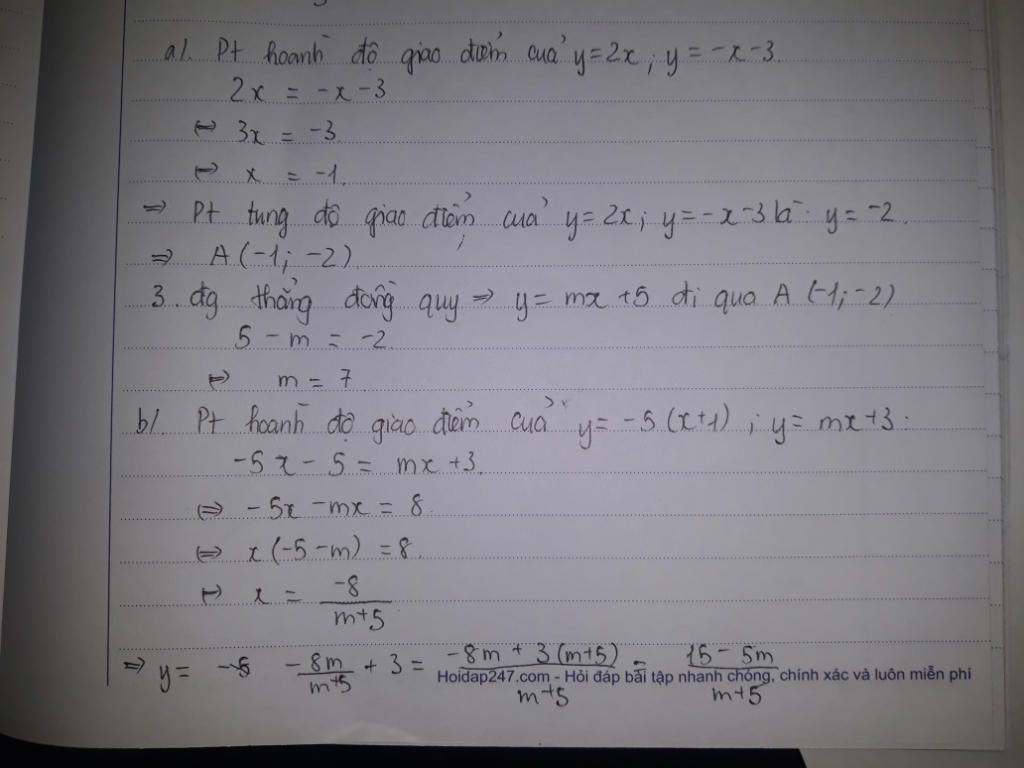 a/. Pt hoành độ giao điểm của y=2x ; y = -x-3.
2x = -x-3
⇔ 3x = -3.
⇔ x = -1.
⇒ Pt tung độ giao điểm của y=2x ; y=-x-3 là y=-2.
⇒ A(-1; -2)
3. đg thẳng đồng quy ⇒ y= mx+5 đi qua A (-1;-2)
5 - m = -2.
⇔ m = 7
b/ Pt hoành độ giao điểm của y= -5(x+1) ; y= mx+3 :
-5x - 5 = mx+3.
⇔ -5x -mx = 8.
⇔ x(-5-m) = 8.
⇔ x = -8/(m+5)
⇒ y = -8m/(m+5) + 3 = (-8m + 3(m+5))/(m+5) = (15-5m)/(m+5)
Hoidap247.com - Hỏi đáp bài tập nhanh chóng, chính xác và luôn miễn phí